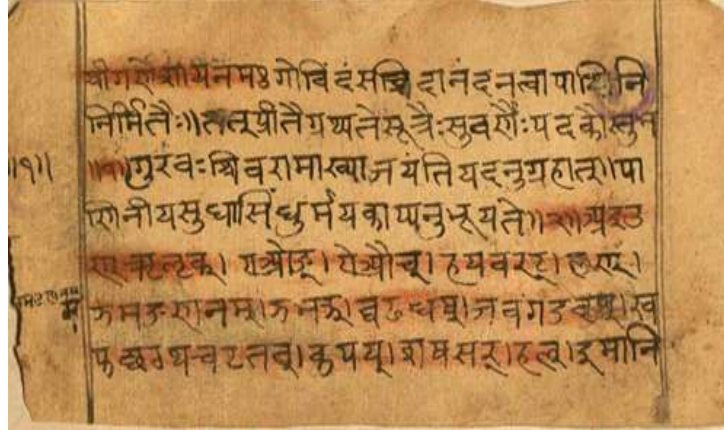 श्रीगणेशायनमः गोविंदंसच्चिदानंदनत्वापाणिनि
निर्मितैः॥तत्प्रीतैग्रथ्यतेसूत्रैःसुवर्णैःपदकौस्तुभ
॥१॥ ॥१॥गुरवःशिवरामाख्याजयंतियदनुग्रहात्॥पा
णिनीयसुधासिंधुर्मयकाप्यनुभूयते॥ ॥अइउ
ण्ऋलृक्।एओङ्।ऐऔच्।हयवरट्।लण्।
ञमङणनम्।झभञ्।घढधष्।जबगडदश्।ख
फछठथचटतव्।कपय्।शषसर्।हल्।इमानि